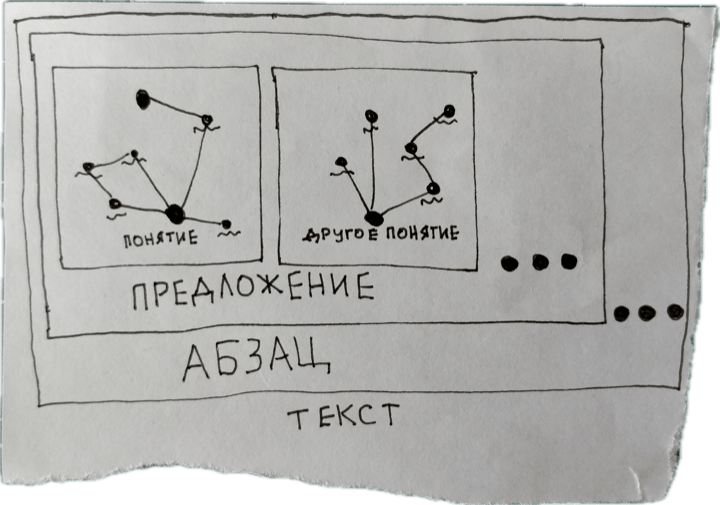 ПОНЯТИЕ
ДРУГОЕ ПОНЯТИЕ
ПРЕДЛОЖЕНИЕ
АБЗАЦ
ТЕКСТ